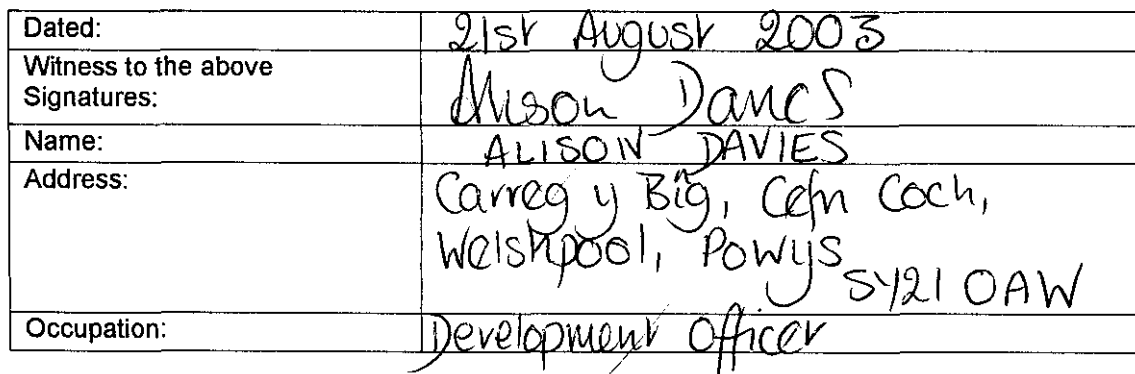 Dated: 21st August 2003
Witness to the above
Signatures: Alison Davies
Name: ALISON DAVIES
Address: Carreg y Big, Cefn Coch,
Welshpool, Powys
SY21 0AW
Occupation: Development Officer